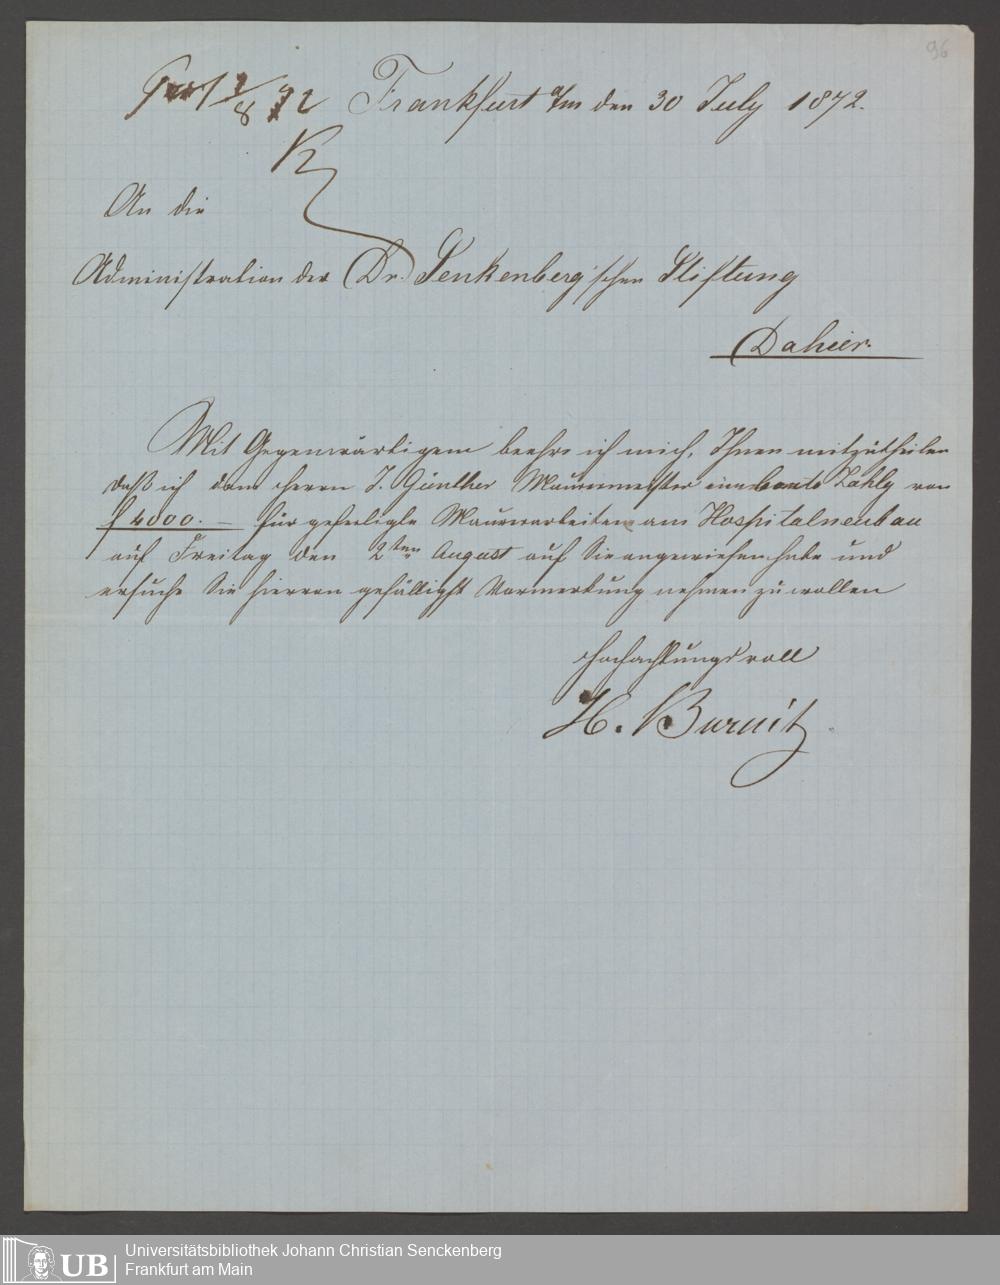 96
1/8 72 Frankfurt a/m den 30 July 1872.
An die
Administration der Dr. Senkenberg'schen Stiftung
Dahier.
Mit Gegenwärtigem beehre ich mich, Ihnen mitzutheilen
daß ich dem Herrn J. Günther Maurermeister eine Zahlg von
f 4000. — für gefertigte Maurerarbeiten am Hospitalneubau
auf Freitag den 2ten August auf Sie angewiesen habe und
ersuche Sie hiervon gefälligst Vormerkung nehmen zu wollen
Hochachtungsvoll
H. Burnitz
UB
Universitätsbibliothek Johann Christian Senckenberg
Frankfurt am Main